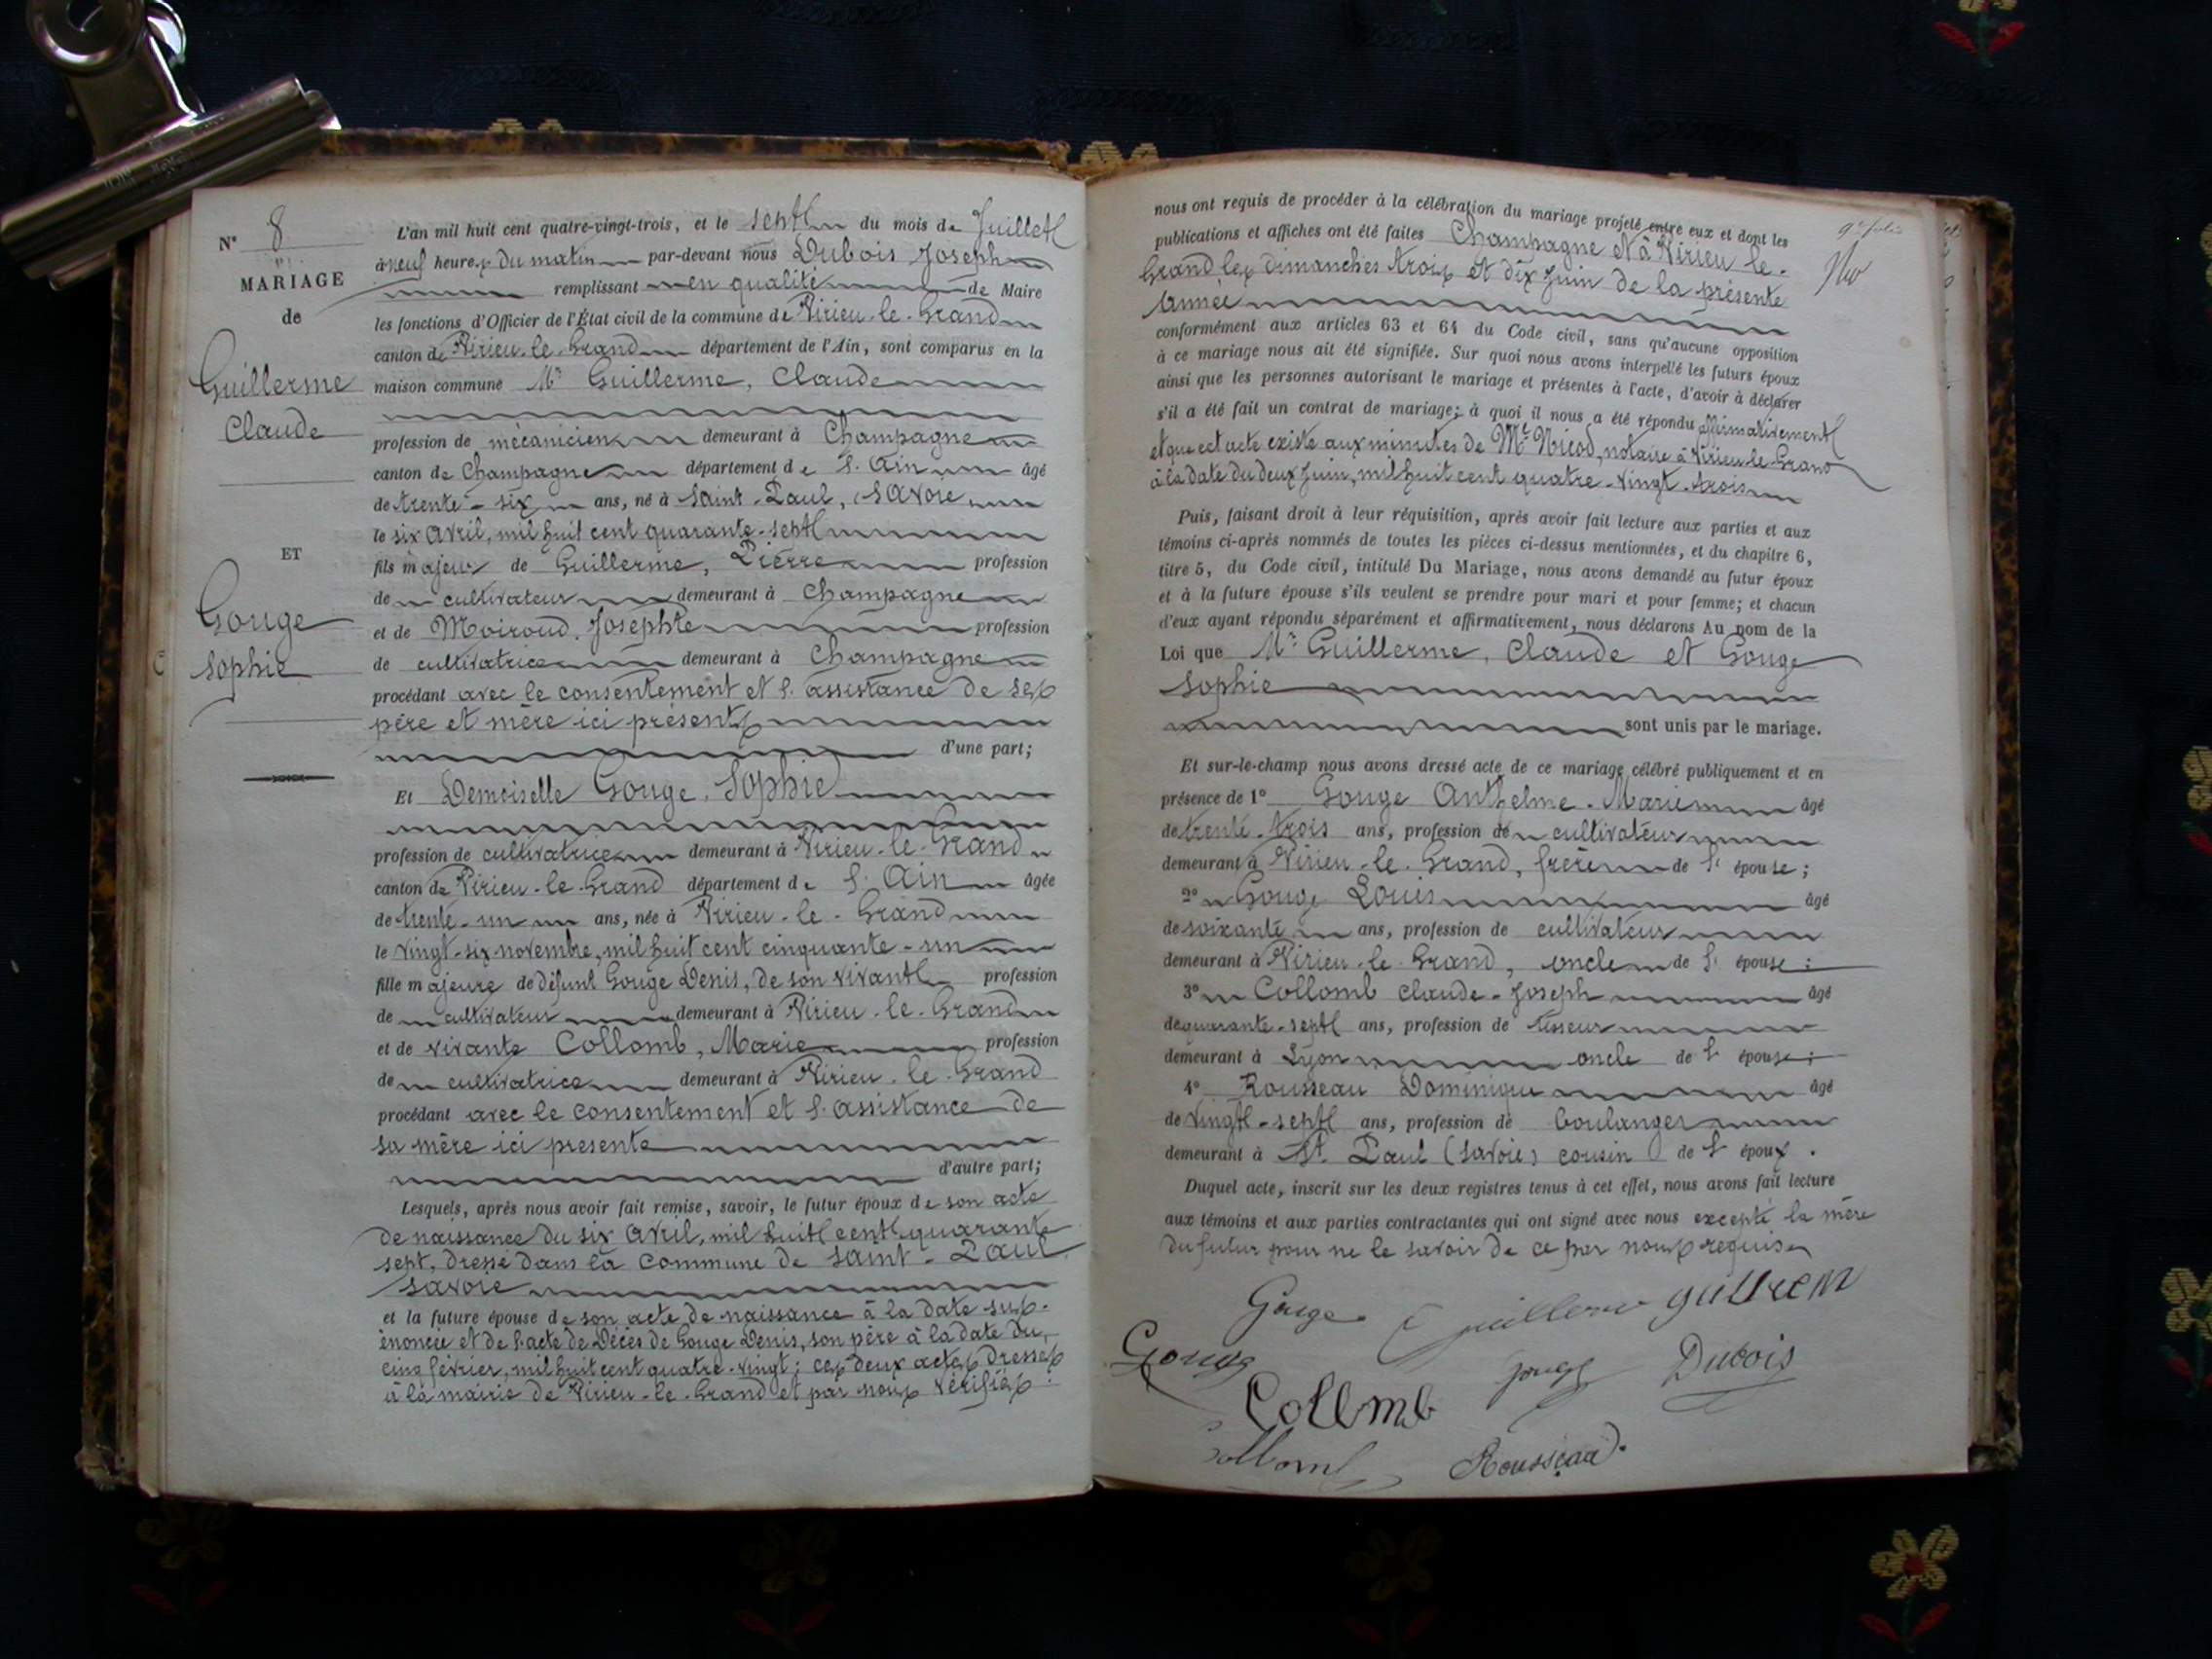 N° 8
MARIAGE
de
Guillerme
Claude
ET
Gouge
Sophie
L'an mil huit cent quatre-vingt-trois, et le sept du mois de Juillet
à neuf heures du matin par-devant nous Dubois Joseph
remplissant en qualité de Maire
les fonctions d'Officier de l'État civil de la commune de Virieu-le-Grand
canton de Virieu-le-Grand département de l'Ain, sont comparus en la
maison commune Mr Guillerme, Claude
profession de mécanicien demeurant à Champagne
canton de Champagne département de l'Ain âgé
de trente-six ans, né à Saint-Paul, Savoie
le six Avril, mil huit cent quarante-sept
fils majeur de Guillerme, Pierre profession
de cultivateur demeurant à Champagne
et de Moiroud, Josephte profession
de cultivatrice demeurant à Champagne
procédant avec le consentement et l'assistance de ses
père et mère ici présents
d'une part;
Et Demoiselle Gouge, Sophie
profession de cultivatrice demeurant à Virieu-le-Grand
canton de Virieu-le-Grand département de l'Ain âgée
de trente-un ans, née à Virieu-le-Grand
le vingt-six novembre, mil huit cent cinquante-un
fille majeure de défunt Gouge Denis, de son vivant profession
de cultivateur demeurant à Virieu-le-Grand
et de vivante Collomb, Marie profession
de cultivatrice demeurant à Virieu-le-Grand
procédant avec le consentement et l'assistance de
sa mère ici présente
d'autre part;
Lesquels, après nous avoir fait remise, savoir, le futur époux de son acte
de naissance du six Avril, mil huit cent quarante
sept, dressé dans la commune de Saint-Paul
Savoie
et la future épouse de son acte de naissance à la date sus-
énoncée et de l'acte de Décès de Gouge Denis, son père à la date du
cinq février, mil huit cent quatre-vingt; ces deux actes dressés
à la mairie de Virieu-le-Grand et par nous vérifiés:
nous ont requis de procéder à la célébration du mariage projeté entre eux et dont les
publications et affiches ont été faites Champagne et à Virieu-le-
Grand les dimanches trois et dix Juin de la présente
année
conformément aux articles 63 et 64 du Code civil, sans qu'aucune opposition
à ce mariage nous ait été signifiée. Sur quoi nous avons interpellé les futurs époux
ainsi que les personnes autorisant le mariage et présentes à l'acte, d'avoir à déclarer
s'il a été fait un contrat de mariage; à quoi il nous a été répondu affirmativement
et que cet acte existe aux minutes de Me Nicod, notaire à Virieu-le-Grand
à la date du deux Juin, mil huit cent quatre-vingt-trois
Puis, faisant droit à leur réquisition, après avoir fait lecture aux parties et aux
témoins ci-après nommés de toutes les pièces ci-dessus mentionnées, et du chapitre 6,
titre 5, du Code civil, intitulé Du Mariage, nous avons demandé au futur époux
et à la future épouse s'ils veulent se prendre pour mari et pour femme; et chacun
d'eux ayant répondu séparément et affirmativement, nous déclarons Au nom de la
Loi que Mr Guillerme, Claude et Gouge
Sophie
sont unis par le mariage.
Et sur-le-champ nous avons dressé acte de ce mariage célébré publiquement et en
présence de 1° Gouge Anthelme-Marie âgé
de trente-trois ans, profession de cultivateur
demeurant à Virieu-le-Grand, frère de l'épouse;
2° Gouge Louis âgé
de soixante ans, profession de cultivateur
demeurant à Virieu-le-Grand, oncle de l'épouse;
3° Collomb Claude-Joseph âgé
de quarante-sept ans, profession de tisseur
demeurant à Lyon oncle de l'épouse;
4° Rousseau Dominique âgé
de vingt-sept ans, profession de boulanger
demeurant à St Paul (Savoie) cousin de l'époux.
Duquel acte, inscrit sur les deux registres tenus à cet effet, nous avons fait lecture
aux témoins et aux parties contractantes qui ont signé avec nous excepté la mère
du futur pour ne le savoir de ce par nous requise
Gouge
Gouge
Dubois
Collomb
Collomb
Rousseau